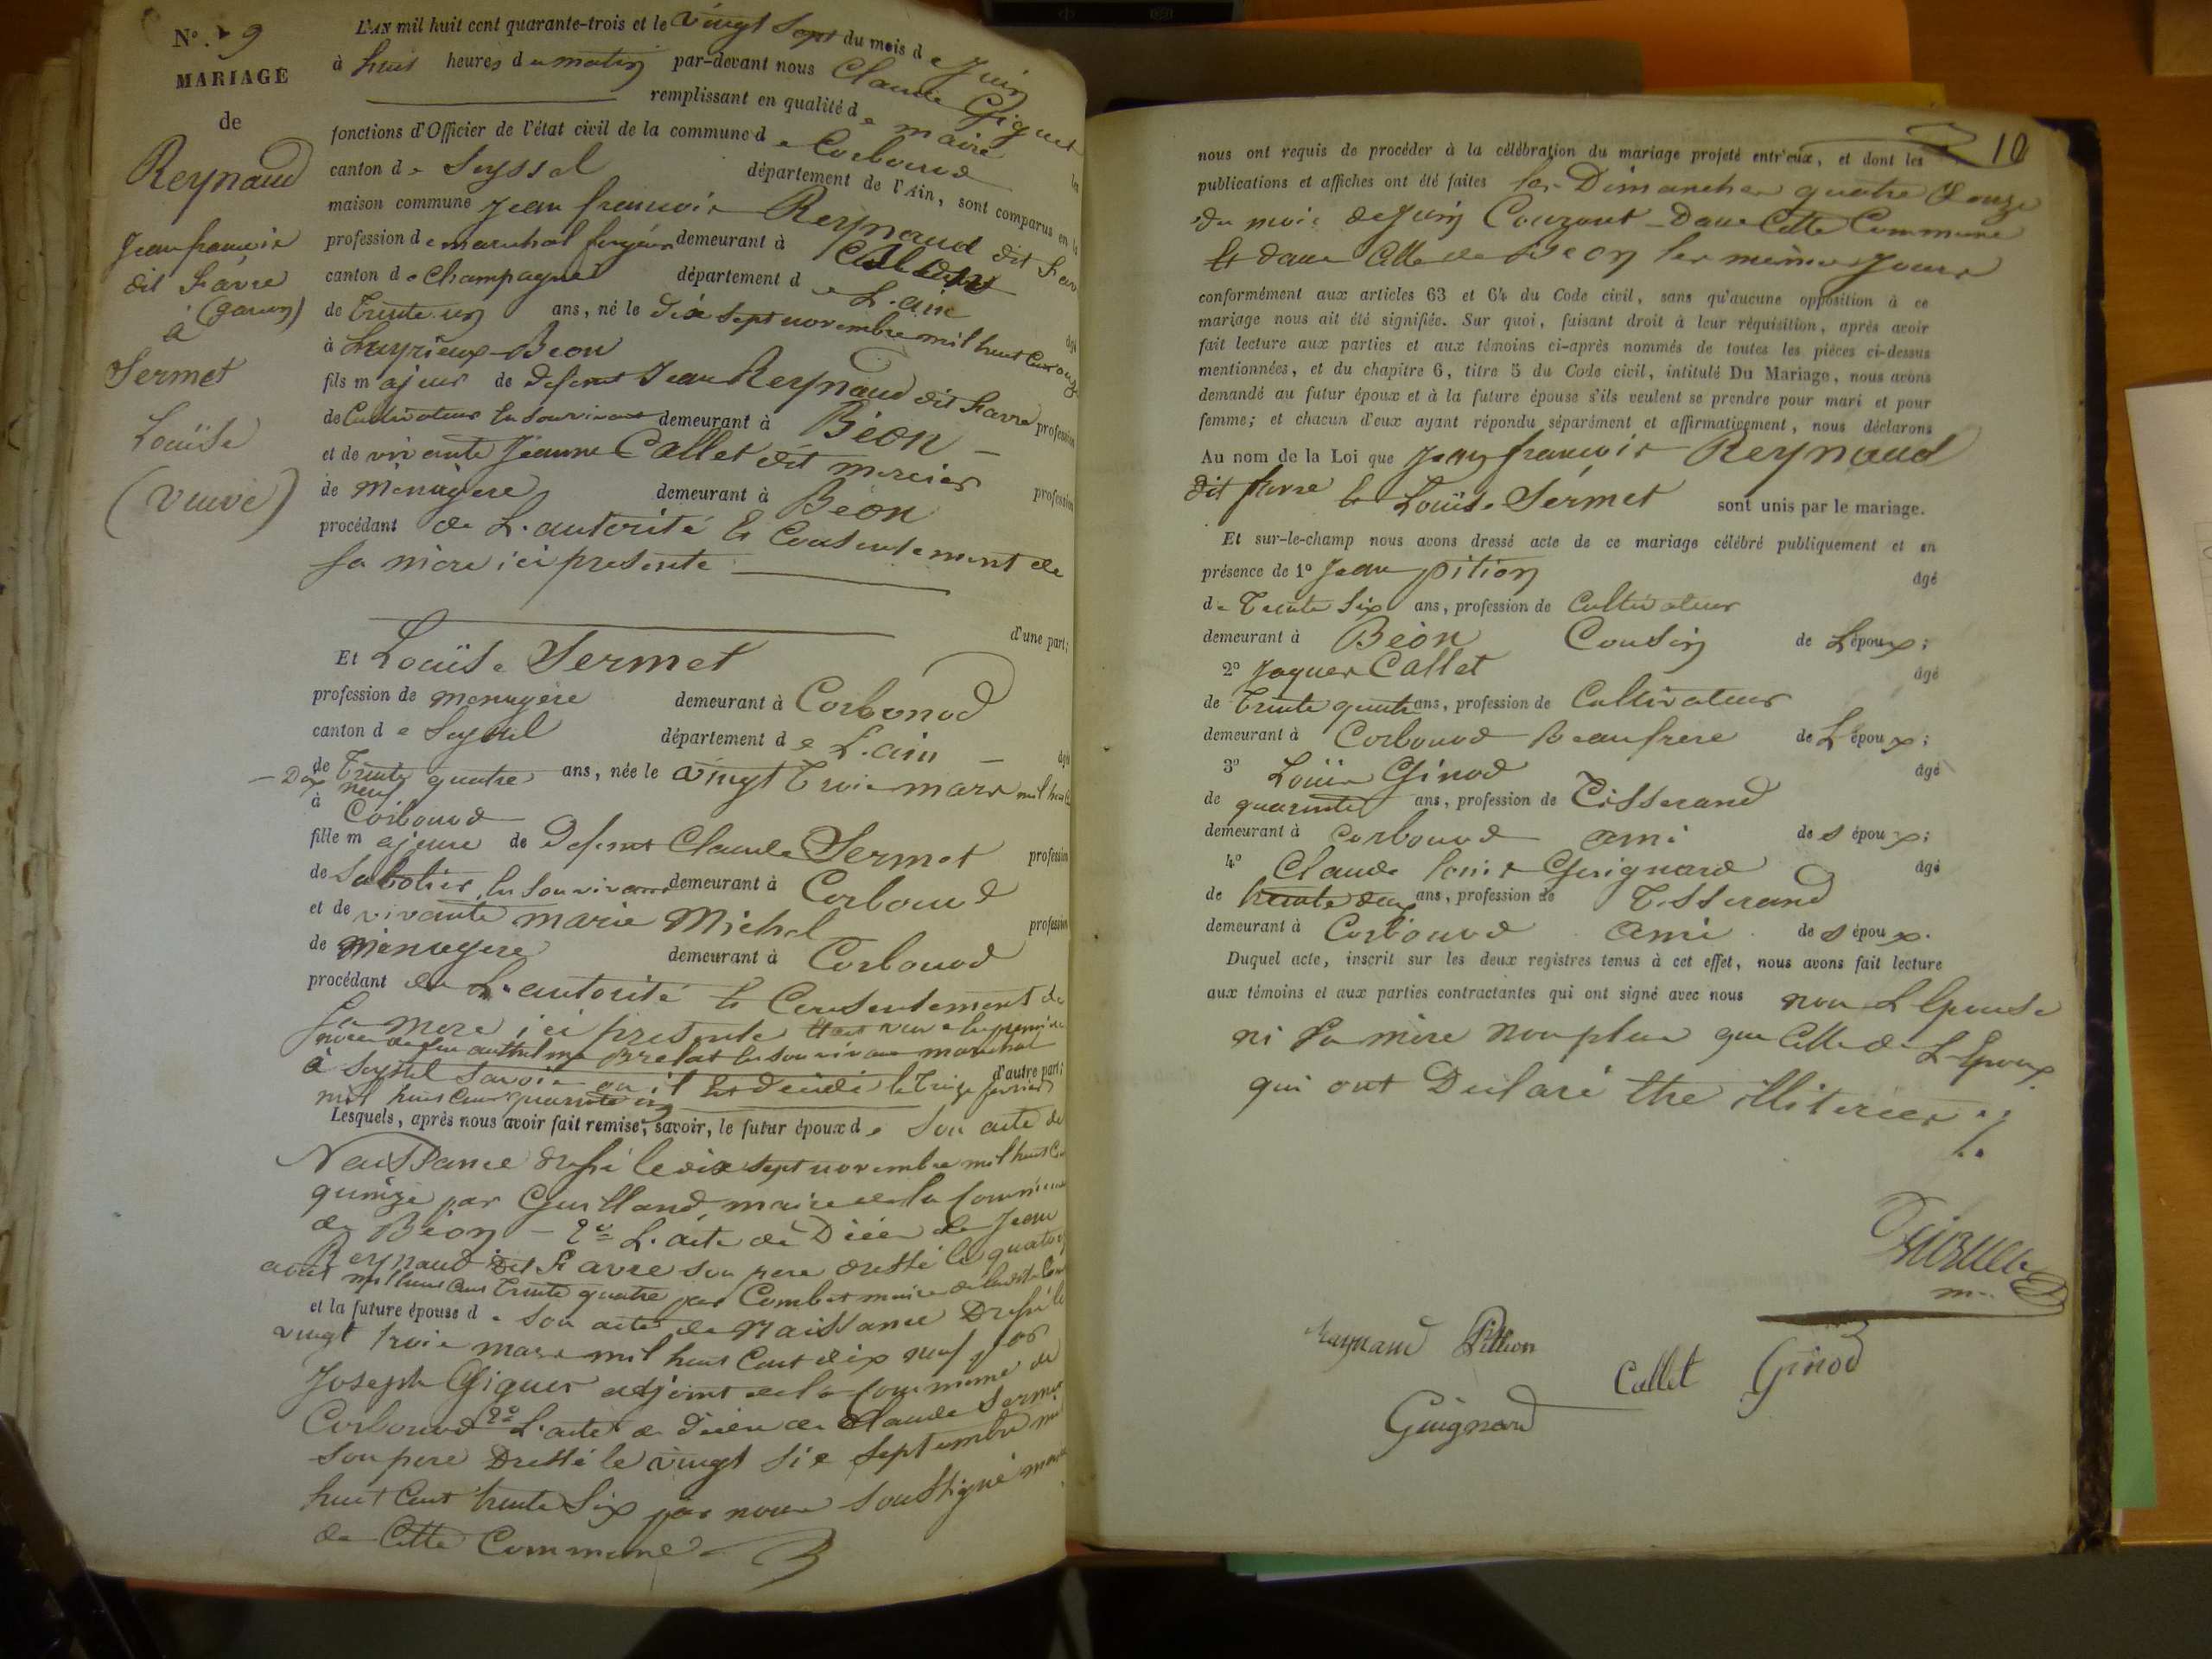 N°. 9
MARIAGE
de
Reynaud
Jean francois
dit Favre
(garçon)
à
Sermet
Louïse
(veuve)
L'AN mil huit cent quarante-trois et le vingt Sept du mois de Juin
à huit heures du matin par-devant nous Claude Giguet
remplissant en qualité de maire
fonctions d'Officier de l'état civil de la commune de Corbonod
canton de Seyssel département de l'Ain, sont comparus en la
maison commune Jean francois Reynaud dit Favre
profession de maréchal demeurant à
canton de Champagne département de L'ain
de Trente un ans, né le dix sept novembre mil huit cent onze
à Luyrieux-Beon
fils majeur de defunt Jean Reynaud dit Favre profession
de Cultivateur en Son vivant demeurant à Béon
et de vivante Jeanne Callet dit mercier profession
de Ménagere demeurant à Béon
procédant de L'autorité et Consentement de
sa mère ici presente
d'une part;
Et Louïse Sermet
profession de menagère demeurant à Corbonod
canton de Seyssel département de L'ain
de Trente quatre ans, née le vingt Trois mars mil huit
Dix neuf
à Corbonod
fille majeure de Defunt Claude Sermet profession
de Sabotier en Son vivant demeurant à Corbonod
et de vivante marie Michel profession
de Ménagere demeurant à Corbonod
procédant de L'autorité et Consentement de
Sa mere ici presente
à Seyssel Savoie ou il est décédé le Treize fevrier d'autre part;
mil huit Cent quarante un
Lesquels, après nous avoir fait remise, savoir, le futur époux de Son acte de
Naissance dressé le dix sept novembre mil huit
par Guilland, maire de la Commune
de Béon - 2° L'acte de Décès de Jean
Reynaud dit Favre son pere dressé le quatorze
août mil huit cent Trente quatre par Combet maire de
et la future épouse de Son acte de Naissance Dressé le
vingt trois mars mil huit Cent dix neuf par
Joseph Giguet adjoint de la Commune de
Corbonod 2° L'acte de décès de Claude Sermet
Son pere Dressé le vingt Six Septembre mil
huit Cent trente Six par nous Soussigné maire
de Cette Commune
10
nous ont requis de procéder à la célébration du mariage projeté entr'eux, et dont les
publications et affiches ont été faites les Dimanches quatre & onze
du mois de Juin Courant Dans Cette Commune
Et dans Celle de Béon les mêmes Jours
conformément aux articles 63 et 64 du Code civil, sans qu'aucune opposition à ce
mariage nous ait été signifiée. Sur quoi, faisant droit à leur réquisition, après avoir
fait lecture aux parties et aux témoins ci-après nommés de toutes les pièces ci-dessus
mentionnées, et du chapitre 6, titre 5 du Code civil, intitulé Du Mariage, nous avons
demandé au futur époux et à la future épouse s'ils veulent se prendre pour mari et pour
femme; et chacun d'eux ayant répondu séparément et affirmativement, nous déclarons
Au nom de la Loi que Jean francois Reynaud
dit favre et Louïse Sermet sont unis par le mariage.
Et sur-le-champ nous avons dressé acte de ce mariage célébré publiquement et en
présence de 1° Jean pition âgé
de Trente Six ans, profession de Cultivateur
demeurant à Béon Cousin de L'époux;
2° Jaques Callet âgé
de Trente quatre ans, profession de Cultivateur
demeurant à Corbonod Beaufrere de L'époux;
3° Louis Ginod âgé
de quarante ans, profession de Tisserand
demeurant à Corbonod ami des époux;
4° Claude louis Guignard âgé
de trente deux ans, profession de Tisserand
demeurant à Corbonod Ami des époux.
Duquel acte, inscrit sur les deux registres tenus à cet effet, nous avons fait lecture
aux témoins et aux parties contractantes qui ont signé avec nous non L'Epouse
ni Sa mère non plus que Celle de L'Epoux
qui ont Declaré Etre illiterées
Reynaud Pittion
Callet Ginod
Guignard